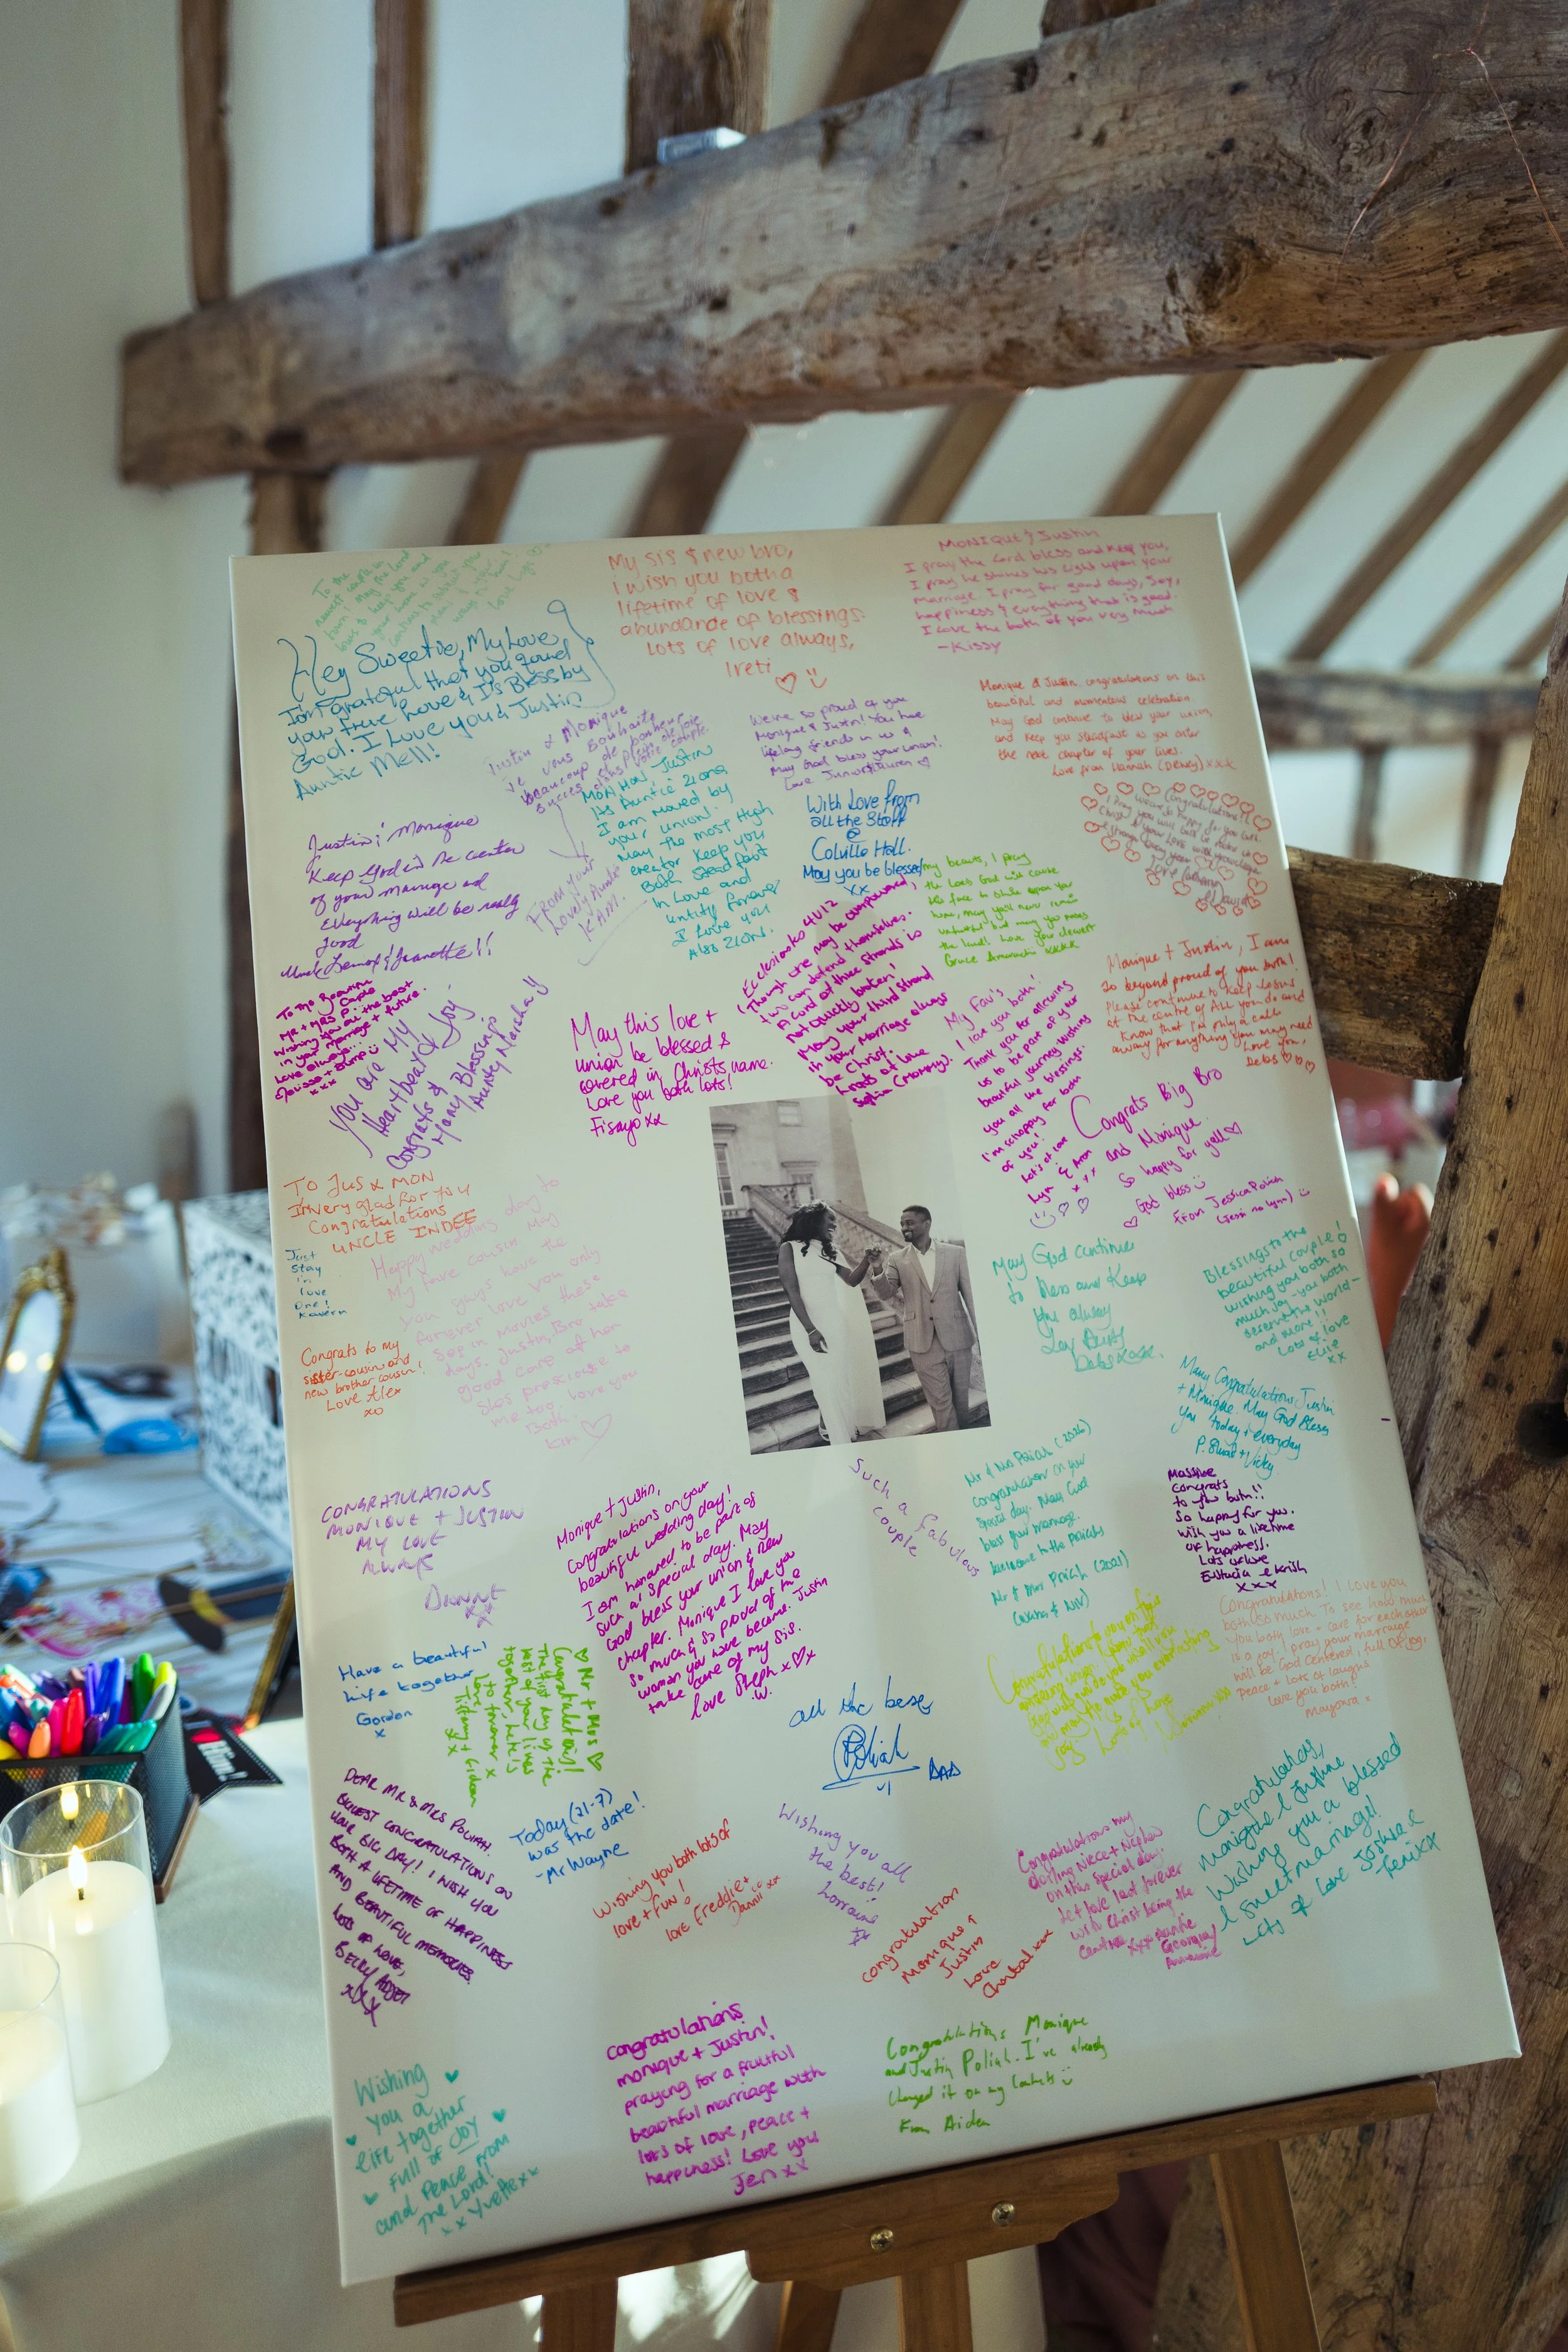 My sis & new bro,
I wish you both a
lifetime of love &
abundance of blessings.
Lots of love always,
Ireti
MONIQUE & Justin
I pray the Lord bless and keep you,
I pray he shines his light upon your
marriage. I pray for good days, Joy,
happiness & everything that is good.
I Love the both of you very much
-Kissy
Hey Sweetie, My Love
I'm Grateful that you found
your true Love & Is Bless by
God. I Love you & Justin
Auntie Mell!
Justin & Monique
Je vous Souhaite
beaucoup de bonheur
succes et plein de joie
dans votre couple.
FROM your
Lovely Auntie
KAM.
We're so proud of you
Monique & Justin! You have
lifelong friends in us &
May God bless your union!
Love Junior & Lauren
Monique & Justin, congratulations on this
beautiful and momentous celebration
May God continue to bless your union,
and keep you steadfast as you enter
the next chapter of your lives.
Love from Hannah (Dewey) xxx
MON MON, JUSTIN
Its Auntie Ziona
I am moved by
your union.
May the most High
creator Keep you
Both Stead fast
In Love and
untity forever
I Love you
Also ZION.
With Love from
all the Staff
@
Colville Hall.
May you be blessed
xx
Congratulations!!
Love
David
Justin & Monique
Keep God in the center
of your marriage and
Everything will be really
good
Uncle Lemox & Jeanette!!
my beauts, I pray
the Lord God will cause
his face to shine upon you
Grace Amarachi xxxx
Ecclesiastes 4v12
(Though one may be overpowered,
two can defend themselves.
A cord of three strands is
not quickly broken!
May your third strand
in your marriage always
be Christ.
Lots of love
Sophia (Mommy).
Monique + Justin, I am
so beyond proud of you both!
Please continue to keep Jesus
at the centre of ALL you do and
know that I'm only a call
away for anything you may need
Love you,
Debs
To the Beautiful
Mr + Mrs P. Couple
Wishing you all the best
in your marriage + future.
Love always...
xxx
You are My
Heartbeat & Joy.
Congrats &
Many Blessings
Aunty Marcha!!
May this love +
union be blessed &
covered in Christs name.
Love you both lots!
Fisayo xx
My Fav's
I love you both!
Thank you for allowing
us to be part of your
beautiful journey. Wishing
you all the blessings.
I'm so happy for both
of you!
Lots of love
Lyn & Aron
xxx
Congrats Big Bro
and Monique
So happy for yall
God bless
From Jessica Poliah
(Jessi no lynn)
TO JUS & MON
Im very glad for you
Congratulations
UNCLE INDEE
Just
Stay
in
love
One!
Kavern
Happy wedding day to
my fave cousin May
you guys have the
forever love you only
see in movies these
days. Justin, Bro take
good care of her
shes precious to
me too. Love you
Both
Kim
Congrats to my
sister-cousin and
new brother cousin!
Love Alex
xo
May God continue
to bless and Keep
you always
Blessings to the
beautiful couple!
wishing you both so
much joy - you both
deserve the world -
and more!!
Lots of love
Ellie
xx
Many Congratulations Justin
+ Monique. May God Bless
you today + everyday
P. Stuart + Vicky
CONGRATULATIONS
MONIQUE + JUSTIN
MY LOVE
ALWAYS
DIANNE
xx
Monique + Justin,
Congratulations on your
beautiful wedding day!
I am honored to be part of
such a special day. May
God bless your union & new
chapter. Monique I love you
so much & so proud of the
woman you have become. Justin
take care of my sis.
love Steph x♡x
Such a fabulous
couple
Mr & Mrs Poliah (2026)
Congratulations on your
special day. May God
bless your marriage.
Welcome to the Poliahs
Mr & Mrs Poliah (2021)
Massive
Congrats
to you both!!
So happy for you.
Wish you a lifetime
of happiness.
Lots of love
Eustacia & Krish
xxx
Congratulations! I love you
both so much. To see how much
you both love + care for each other
is a joy. I pray your marriage
will be God centered, full of joy,
peace + lots of laughs
love you both!
Mayowa x
Have a beautiful
life together
Gordon
x
♡ Mr + Mrs ♡
Congratulations!
The first day of the
rest of your lives
together, here's
to forever x
Love,
Tiffany + Gideon
xx
all the best
Poliah
DAD
DEAR MR & MRS POLIAH.
BIGGEST CONGRATULATIONS ON
YOUR BIG DAY! I WISH YOU
BOTH A LIFETIME OF HAPPINESS
AND BEAUTIFUL MEMORIES.
LOTS OF LOVE,
xxx
Today (21-7)
was the date!
-Mr Wayne
Wishing you both lots of
love + fun!
love Freddie +
Dannii xx
Wishing you all
the best!
Lorraine
xx
congratulation
Monique &
Justin
Love
Chantal xxx
Congratulations my
darling Niece + Nephew
on this special day.
Let love last forever
with Christ being the
centre xxx Auntie
Georgia
Congratulations,
monique & Justine
Wishing you a blessed
& sweet marriage!
Lots of love Joshua &
Fenix xx
Wishing
you a
life together
full of JOY
and Peace from
The Lord!
xx Yvette xx
congratulations
monique + Justin!
praying for a fruitful
beautiful marriage with
lots of love, peace +
happiness! Love you
Jen xx
Congratulations Monique
and Justin Poliah. I've already
changed it on my contacts
From Aiden